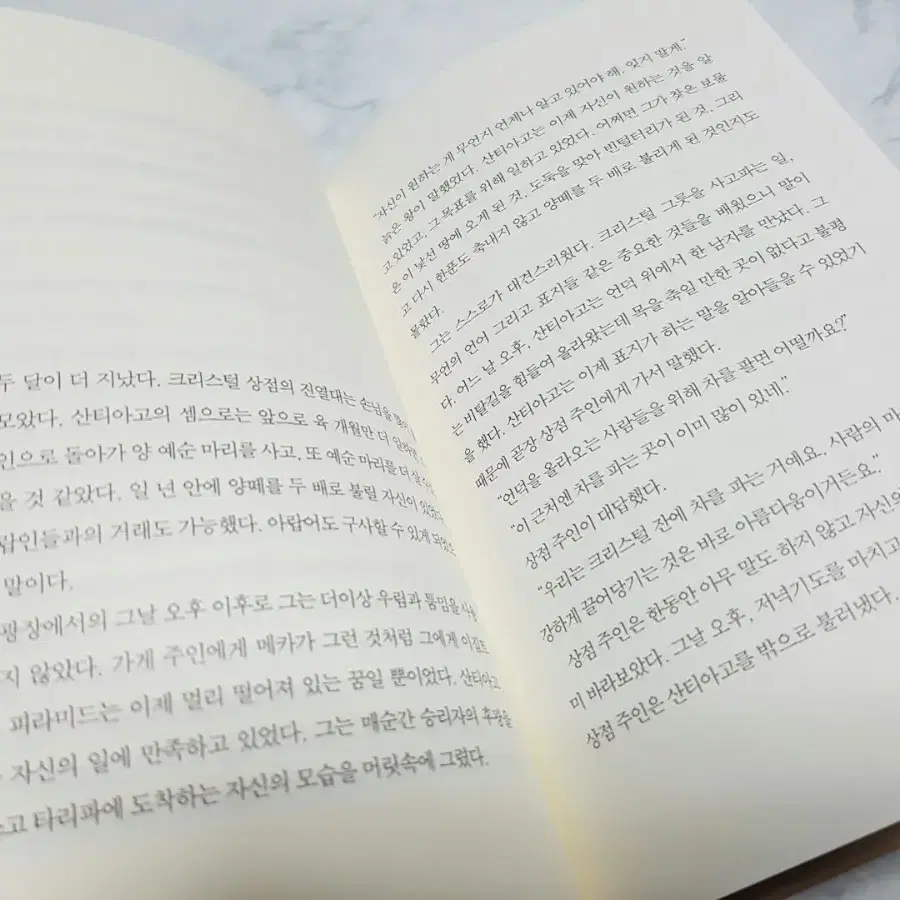 두 달이 더 지났다. 크리스털 상점의 진열대는 손님을
모았다. 산티아고의 셈으로는 앞으로 육 개월만 더
인으로 돌아가 양 예순 마리를 사고, 또 예순 마리를 더
을 것 같았다. 일 년 안에 양떼를 두 배로 불릴 자신이
랍인들과의 거래도 가능했다. 아랍어도 구사할 수 있게
말이다.
광장에서의 그날 오후 이후로 그는 더이상 우림과 툼밈을
지 않았다. 가게 주인에게 메카가 그런 것처럼 그에게 이집트
피라미드는 이제 멀리 떨어져 있는 꿈일 뿐이었다. 산티아고
자신의 일에 만족하고 있었다. 그는 매순간 승리자의
고 타리파에 도착하는 자신의 모습을 머릿속에 그렸다.
“자신이 원하는 게 무언지 언제나 알고 있어야 해. 잊지 말게.”
늙은 왕이 말했었다. 산티아고는 이제 자신이 원하는 것을 알
고 있었고, 그 목표를 위해 일하고 있었다. 어쩌면 그가 찾은 보물
은 이 낯선 땅에 오게 된 것, 도둑을 맞아 빈털터리가 된 것, 그리
고 다시 한푼도 축내지 않고 양떼를 두 배로 불리게 된 것인지도
몰랐다.
그는 스스로가 대견스러웠다. 크리스털 그릇을 사고파는 일,
무언의 언어 그리고 표지들 같은 중요한 것들을 배웠으니 말이
다. 어느 날 오후, 산티아고는 언덕 위에서 한 남자를 만났다. 그
는 비탈길을 힘들여 올라왔는데 목을 축일 만한 곳이 없다고 불평
을 했다. 산티아고는 이제 표지가 하는 말을 알아들을 수 있었기
때문에 곧장 상점 주인에게 가서 말했다.
“언덕을 올라오는 사람들을 위해 차를 팔면 어떨까요?”
“이 근처엔 차를 파는 곳이 이미 많이 있네.”
상점 주인이 대답했다.
“우리는 크리스털 잔에 차를 파는 거예요. 사람의 마
강하게 끌어당기는 것은 바로 아름다움이거든요.”
상점 주인은 한동안 아무 말도 하지 않고 자신의
미 바라보았다. 그날 오후, 저녁기도를 마치고
상점 주인은 산티아고를 밖으로 불러냈다.